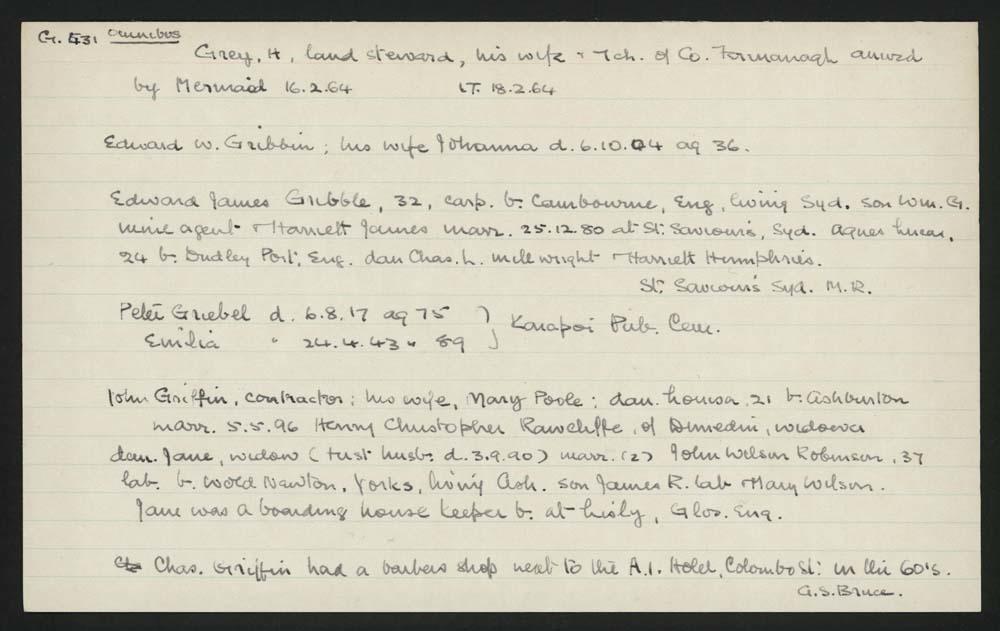 G. 431 Omnibus
Grey, H, land steward, his wife + 7 ch. of Co. Fermanagh arrived
by Mermaid 16.2.64 LT. 18.2.64
Edward W. Gribbin; his wife Johanna d. 6.10.04 ag 36.
Edward James Gribble, 32, carp. b. Cambourne, Eng, living Syd. son Wm. G.
mine agent + Harriett James marr. 25.12.80 at St. Saviour's, Syd. Agnes Lucas,
24 b. Dudley Port, Eng. dau Chas. L. millwright + Harriett Humphries.
St. Saviour's Syd. M.R.
Peter Griebel d. 6.8.17 ag 75 } Kaiapoi Pub. Cem.
Emilia " 24.4.43 " 89
John Griffin, contractor; his wife, Mary Poole; dau. Louisa, 21 b. Ashburton
marr. 5.5.96 Henry Christopher Rawcliffe, of Dunedin, widower
dau. Jane, widow (first husb. d. 3.9.90) marr. (2) John Wilson Robinson, 37
lab. b. Wold Newton, Yorks, living Ash. son James R. lab + Mary Wilson.
Jane was a boarding house keeper b. at, Glos. Eng.
Chas. Griffin had a barbers shop next to the A.1. Hotel, Colombo St. in the 60's.
G.S. Bruce.